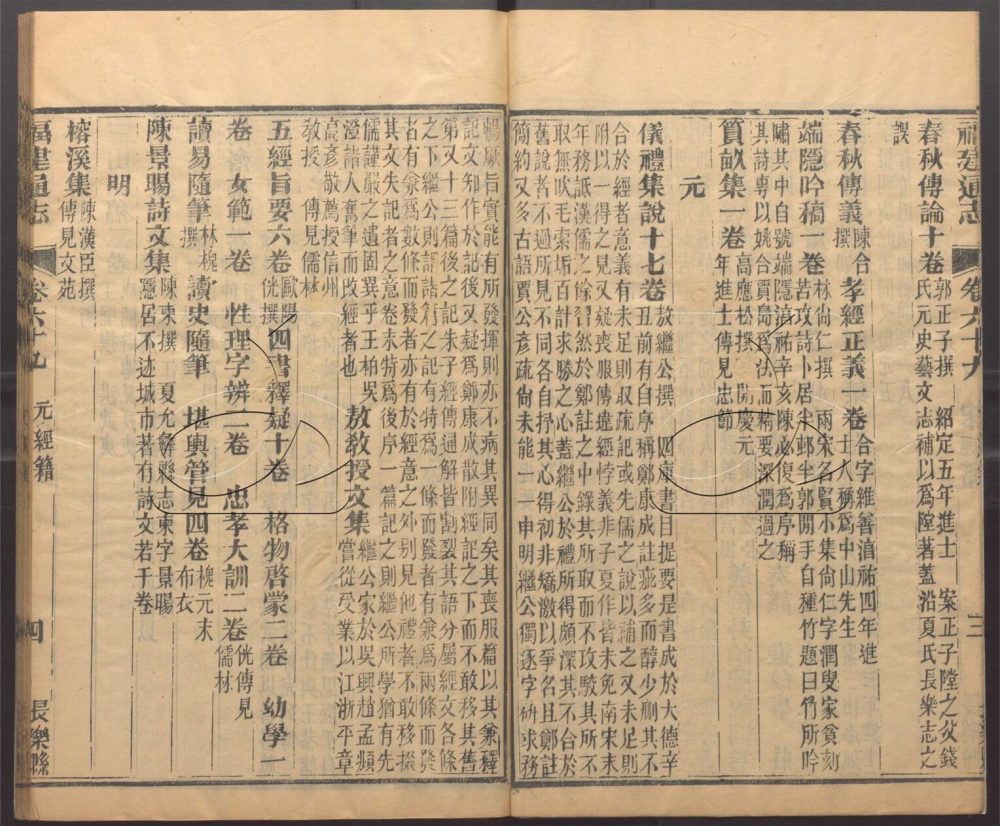 福建通志
卷六十九
三
春秋傳論十卷 郭正子撰 紹定五年進士 案正子陞之父錢
氏元史藝文志補以爲陞著蓋沿夏氏長樂志之
誤
春秋傳義 陳合撰 孝經正義一卷 合字維善淯祐四年進
士人稱爲中山先生
端隱吟稿一卷 林尙仁撰 兩宋名賢小集尙仁字潤叟家貧刻
苦攻詩卜居半邨半郭閒手自種竹題曰竹所吟
嘯其中自號端隱淯祐辛亥陳必復爲序稱
其詩專以姚合賈島爲法而精要深潤過之
質畝集一卷 高應松撰 開慶元
年進士傳見忠節
元
儀禮集說十七卷 敖繼公撰 四庫書目提要是書成於大德辛
丑前有自序稱鄭康成註疵多而醇少刪其不
合於經者意義有未足則取疏記或先儒之說以補之又未足則
附以一得之見又疑喪服傳違經悖義非子夏作皆未免南宋末
年務詆漢儒之餘習然於鄭註之中錄其所取而不攻駁其所不
取無吹毛索垢百計求勝之心蓋繼公於禮所得頗深其不合於
舊說者不過所見不同各自抒其心得初非矯激以爭名且鄭註
簡約又多古語賈公彥疏尙未能一一申明繼公獨逐字硏求務
暢厥旨實能有所發揮則亦不病其異同矣其喪服篇以其兼釋
記文知作於記後又疑爲鄭康成散附經記之下而不敢移其舊
第又十三篇後之記朱子經傳通解皆割裂其語分屬經文各條
之下繼公則謂諸篇之記有特爲一條而發者有兼爲兩條而發
者有兼爲數條而發者亦有於經意之外别見他禮者不敢移掇
其文失記者之意卷末特爲後序一篇記之則繼公所學猶有先
儒謹嚴之遺固異乎王柏吳
澄諸人奮筆而改經者也 敖教授文集 繼公家於吳興趙孟頫
嘗從受業以江浙平章
高彥敬薦授信州
教授 傳見儒林
五經旨要六卷 歐陽
侊撰 四書釋疑十卷 格物啓蒙二卷 幼學一
卷 女範一卷 性理字辨二卷 忠孝大訓二卷 侊傳見
儒林
讀易隨筆 林槐
撰 讀史隨筆 堪輿管見四卷 槐元末
布衣
陳景暘詩文集 陳柬撰 夏允彝縣志柬字景暘
隱居不迹城市著有詩文若干卷
明
榕溪集 陳漢臣撰
傳見文苑
福建通志
卷六十九 元經籍
四
長樂縣